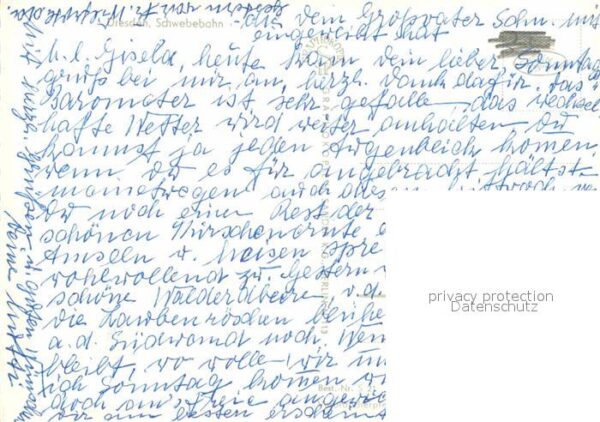 Dresden, Schwebebahn
die dem Großvater Sohn. mit
eingeweiht hat
M. l. Gisela, heute kam dein lieber Sonntag
gruß bei mir an, herzl. Dank dafür. Das
Barometer ist sehr gefalle das wechsel
hafte Wetter wird weiter anhalten Du
kommst ja jeden Augenblick komen,
wenn Du es für angebracht hältst
meinetwegen auch diesen Mittwoch
Du noch einen Rest der
schönen Kirschenernte
Amseln u. Meisen spre
wohlwollend zu. Gestern
schöne Walderdbeere u. d.
die Laubenröschen
a. d. Südwand noch. Wen
bleibt, wo wolle wir
ich Sonntag komen
doch am Freie angewie
wir am besten
Mit herzl. Grüßen u. guten Wünschen
Deine Mutti
privacy protection
Datenschutz
Best.-Nr. S